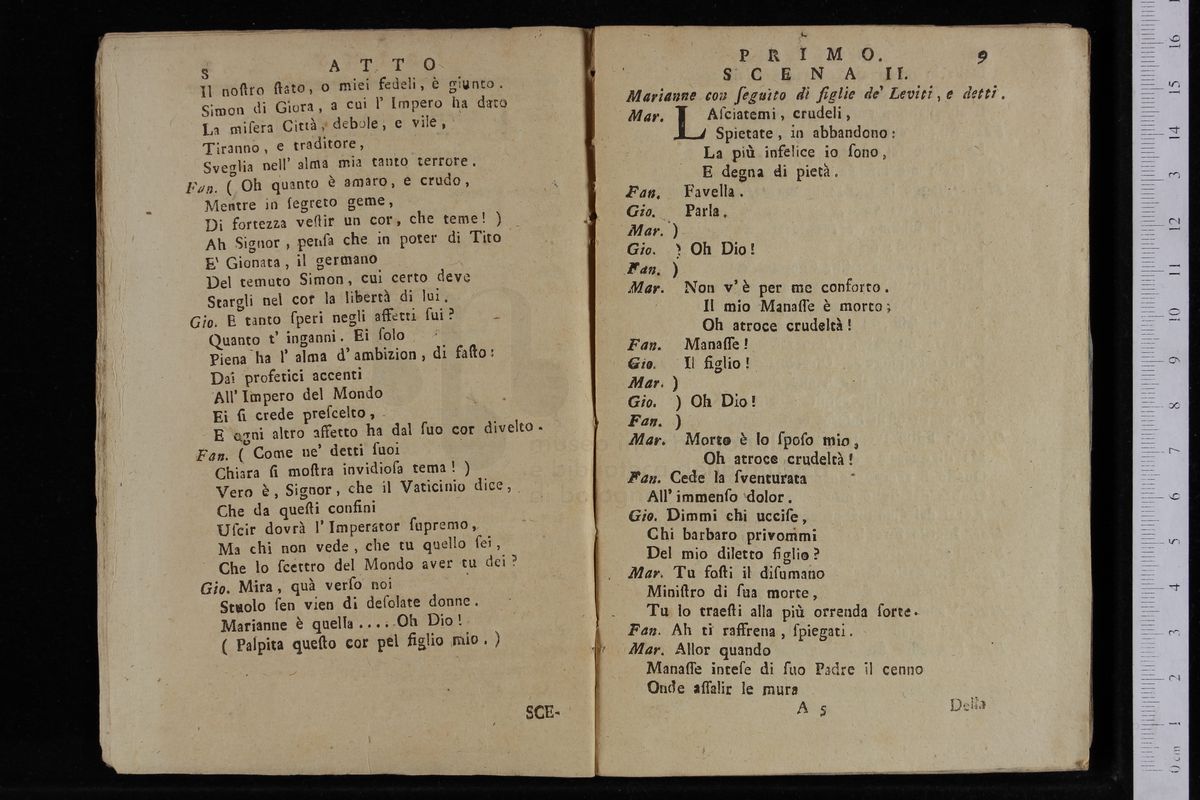 8 ATTO
Il noſtro ſtato, o miei fedeli, è giunto.
Simon di Giora, a cui l' Impero ha dato
La miſera Città, debole, e vile,
Tiranno, e traditore,
Sveglia nell' alma mia tanto terrore.
Fan. ( Oh quanto è amaro, e crudo,
Mentre in ſegreto geme,
Di fortezza veſtir un cor, che teme! )
Ah Signor, penſa che in poter di Tito
E' Gionata, il germano
Del temuto Simon, cui certo deve
Stargli nel cor la libertà di lui.
Gio. E tanto ſperi negli affetti ſui?
Quanto t' inganni. Ei ſolo
Piena ha l' alma d' ambizion, di faſto:
Dai profetici accenti
All' Impero del Mondo
Ei ſi crede preſcelto,
E ogni altro affetto ha dal ſuo cor divelto.
Fan. ( Come ne' detti ſuoi
Chiara ſi moſtra invidioſa tema! )
Vero è, Signor, che il Vaticinio dice,
Che da queſti confini
Uſcir dovrà l' Imperator ſupremo,
Ma chi non vede, che tu quello ſei,
Che lo ſcettro del Mondo aver tu dei?
Gio. Mira, quà verſo noi
Stuolo ſen vien di deſolate donne.
Marianne è quella .... Oh Dio!
( Palpita queſto cor pel figlio mio. )
SCE-
PRIMO. 9
SCENA II.
Marianne con ſeguito di figlie de' Leviti, e detti.
Mar. LAſciatemi, crudeli,
Spietate, in abbandono:
La più infelice io ſono,
E degna di pietà.
Fan. Favella.
Gio. Parla.
Mar. )
Gio. ) Oh Dio!
Fan. )
Mar. Non v' è per me conforto.
Il mio Manaſſe è morto;
Oh atroce crudeltà!
Fan. Manaſſe!
Gio. Il figlio!
Mar. )
Gio. ) Oh Dio!
Fan. )
Mar. Morto è lo ſpoſo mio,
Oh atroce crudeltà!
Fan. Cede la ſventurata
All' immenſo dolor.
Gio. Dimmi chi ucciſe,
Chi barbaro privommi
Del mio diletto figlio?
Mar. Tu foſti il diſumano
Miniſtro di ſua morte,
Tu lo traeſti alla più orrenda ſorte.
Fan. Ah ti raffrena, ſpiegati.
Mar. Allor quando
Manaſſe inteſe di ſuo Padre il cenno
Onde aſſalir le mura
A 5 Della
0 cm 1 2 3 4 5 6 7 8 9 10 11 12 13 14 15 16